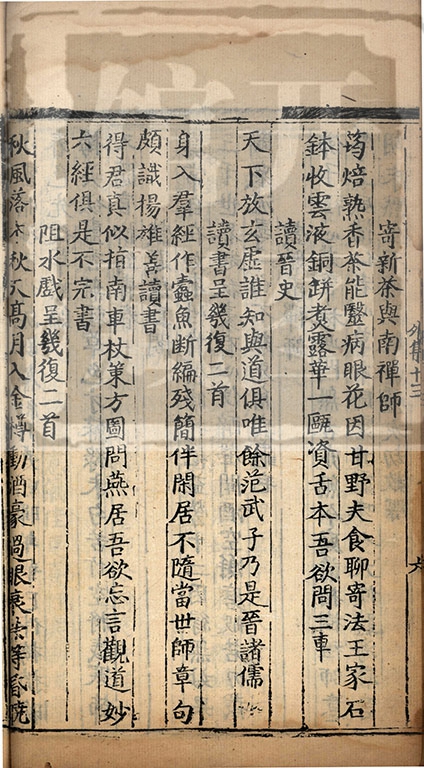 外集十三
六
寄新茶與南禪師
筠焙熟香茶能醫病眼花因甘野夫食聊寄法王家石
鉢收雲液銅缾煑露華一甌資舌本吾欲問三車
讀晉史
天下放玄虛誰知與道俱唯餘范武子乃是晉諸儒
讀書呈幾復二首
身入羣經作蠹魚断編殘簡伴閑居不隨當世師章句
頗識揚雄善讀書
得君真似指南車杖䇿方圖問燕居吾欲忘言觀道妙
六經俱是不完書
阻水戲呈幾復二首
秋風落木秋天髙月入金樽動酒豪過眼衰榮等昏曉